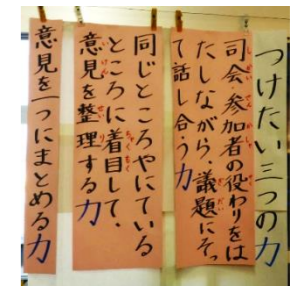 つけたい三つの力
司会・参加者の役わりをは
たしながら、議題にそっ
て話し合う力
同じところやにている
ところに着目して、
意見を整理する力
意見を一つにまとめる力